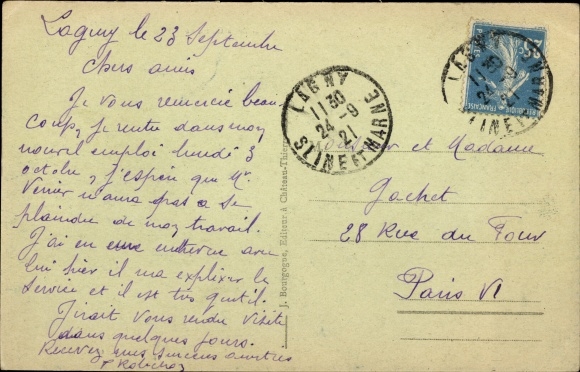 Lagny le 23 Septembre
Chers amis
Je vous remercie beau
coup, je rentre dans mon
nouvel emploi lundi 3
octobre, j'espère que Mr.
Verrier n'aura pas a se
plaindre de mon travail.
J'ai eu une entrevue avec
lui hier il m'a expliquer le
service et il est très gentil.
J'irait vous rendre visite
dans quelques jours.
Recevez mes sincères amitiés
J. Bourgogne, Editeur à Château-Thierry
LAGNY
11 30
24 - 9
21
SEINE ET MARNE
LAGNY
11 30
24 - 9
21
SEINE ET MARNE
Monsieur et Madame
Gachet
28 Rue du Four
Paris VI